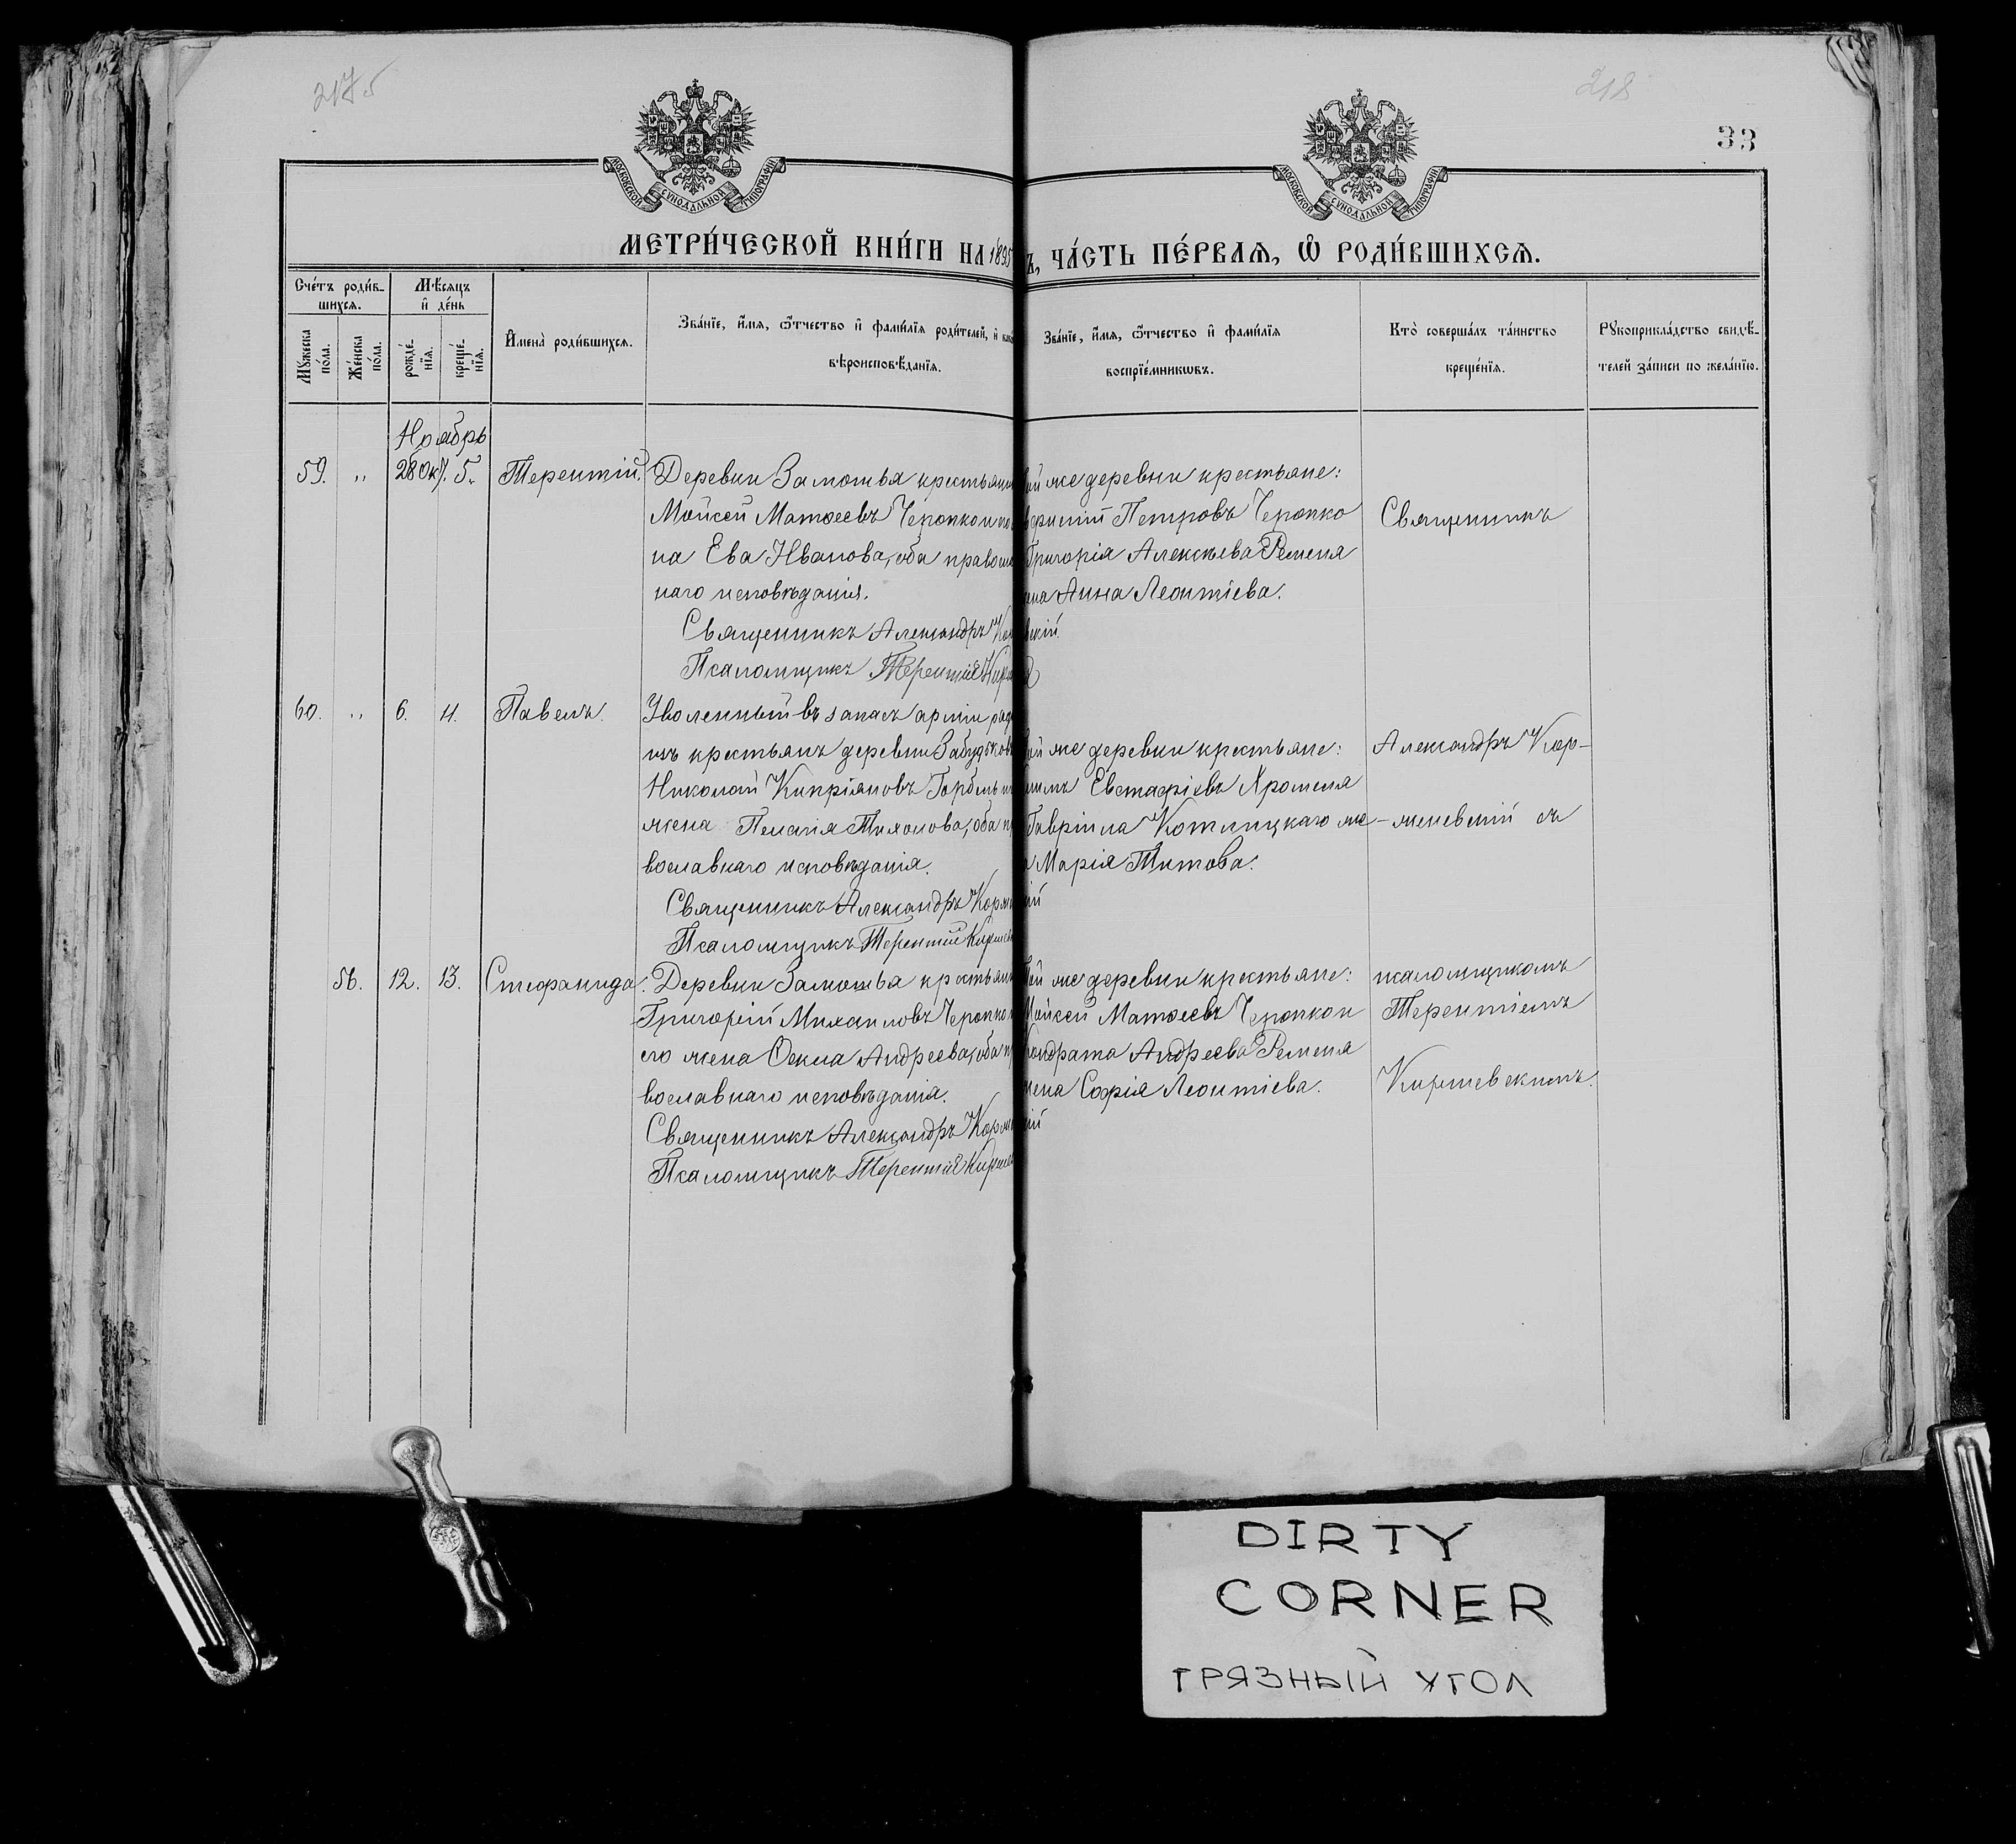 2175
218
33
МОСКОВСКОЙ СѴНОДАЛЬНОЙ ТИПОГРАФІИ
МОСКОВСКОЙ СѴНОДАЛЬНОЙ ТИПОГРАФІИ
МЕТРИ́ЧЕСКОЙ КНИ́ГИ НА 1895
Ъ, ЧА́СТЬ ПЕ́РВАЯ, Ѿ РОДИ́ВШИХСЯ.
Сче́тъ роди́в-
шихся.
Мѣ́сяцъ
и де́нь
Му́жеска
по́ла.
Же́нска
по́ла.
рожде́-
нїя.
креще́-
нїя.
Имена̀ роди́вшихся.
Зва́нїе, и́мя, ѻ҆́тчество и фами́лїя роди́телей, и
вѣроисповѣ́данїя.
Зва́нїе, и́мя, ѻ҆́тчество и фами́лїя
воспрїе́мниковъ.
Кто̀ соверша́лъ та́инство
креще́нїя.
Рꙋкоприкла́дство свидѣ́-
телей за́писи по жела́нїю.
Ноябрь
59. „ 28 Окт. 5. Терентій. Деревни Замошья крестьянин
Мойсей Матѳеевъ Черопко
на Ева Иванова, оба правосл
наго исповѣданія.
Священникъ Александръ
Псаломщикъ Терентій
ой же деревни крестьяне:
Петровъ Черопко
Григорія Алексѣева Ременя
Анна Леонтіева.
Священникъ
60. „ 6. 11. Павелъ. Уволенный въ запасъ арміи ряд
изъ крестьянъ деревни
Николай Кипріановъ
жена Пелагія Тихонова, оба п
вославнаго исповѣданія.
Священникъ Александръ
Псаломщикъ Терентій
ой же деревни крестьяне:
Евстафіевъ
Гавріила Котлицкаго же
Марія Титова.
Александръ Кор-
-женевскій съ
56. 12. 13. Стефанида. Деревни Замошья крестьянин
Григорій Михаиловъ Черопко
его жена Ѳекла Андреева, оба п
вославнаго исповѣданія.
Священникъ Александръ
Псаломщикъ Терентій
той же деревни крестьяне:
Мойсей Матѳеевъ Черопко
Кондрата Андреева Ременя
жена Софія Леонтіева.
псаломщикомъ
Терентіемъ
Киршевскимъ.
DIRTY
CORNER
ГРЯЗНЫЙ УГОЛ